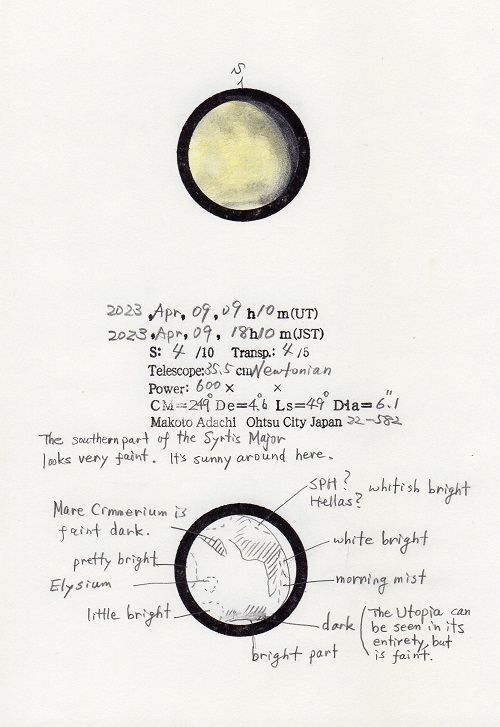 S
2023, Apr, 09, 09 h10 m(UT)
2023, Apr, 09, 18h10 m(JST)
S: 4 /10 Transp.: 4 /5
Telescope:35.5 cm Newtonian
Power: 600 × ×
CM=249° De=4.6° Ls=49° Dia=6."1
Makoto Adachi Ohtsu City Japan 22-582
The southern part of the Syrtis Major
looks very faint. It's sunny around here.
SPH? whitish bright
Hellas?
Mare Cimmerium is
faint dark.
white bright
pretty bright
Elysium
morning mist
little bright
dark (The Utopia can
be seen in its
entirety, but
is faint.
bright part